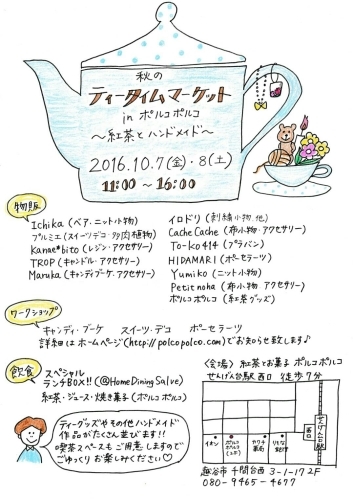 秋の
ティータイムマーケット
in ポルコポルコ
～紅茶とハンドメイド～
2016.10.7(金)・8(土)
11:00 ～ 16:00
物販
Ichika (ベア・ニット小物)
プルミエ (スイーツデコ・多肉植物)
Kanae*bito (レジン・アクセサリー)
TROP (キャンドル・アクセサリー)
Maruka (キャンディブーケ・アクセサリー)
イロドリ (刺繍小物 他)
Cache Cache (布小物・アクセサリー)
To-ko414 (プラバン)
HIDAMARI (ポーセラーツ)
Yumiko (ニット小物)
Petit noha (布小物 アクセサリー)
ポルコポルコ (紅茶グッズ)
ワークショップ
キャンディ・ブーケ スイーツ・デコ ポーセラーツ
詳細は ホームページ(http://polcopolco.com)でお知らせ致します♪
飲食
スペシャル
ランチBOX!! (@HomeDiningSalve)
紅茶・ジュース・焼き菓子 (ポルコポルコ)
ティーグッズやその他ハンドメイド
作品がたくさん並びます!!
喫茶スペースもご用意しますので
ごゆっくりお楽しみください♡
〈会場〉 紅茶とお菓子 ポルコポルコ
せんげん台駅 西口 徒歩7分
イオン
ポルコポルコ
(2F)
カワチ薬局
せんげん台駅
西口
越谷市 千間台西 3-1-17 2F
080-9465-4677